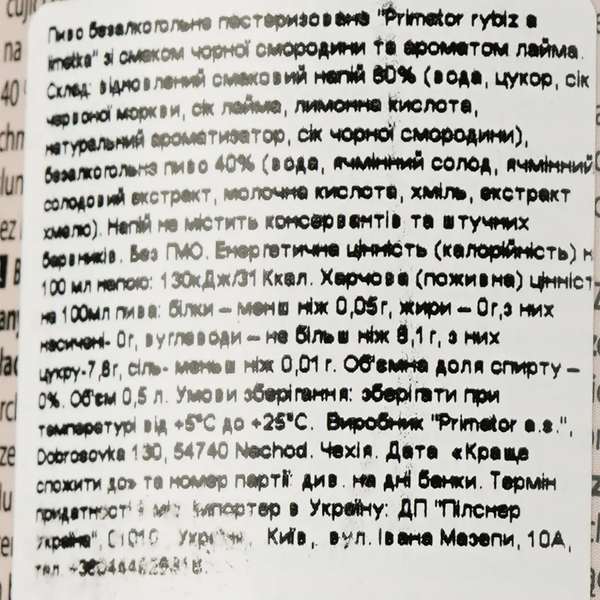 Пиво безалкогольне пастеризоване "Primator rybiz a
limetka" зі смаком чорної смородини та ароматом лайма.
Склад: відновлений смаковий напій 60% (вода, цукор, сік
червоної моркви, сік лайма, лимонна кислота,
натуральний ароматизатор, сік чорної смородини),
безалкогольне пиво 40% (вода, ячмінний солод, ячмінний
солодовий екстракт, молочна кислота, хміль, екстракт
хмелю). Напій не містить консервантів та штучних
барвників. Без ГМО. Енергетична цінність (калорійність) н
100 мл напою: 130кДж/31 Ккал. Харчова (поживна) цінніст
на 100мл пива: білки – менш ніж 0,05г, жири – 0г,з них
насичені- 0г, вуглеводи – не більш ніж 8,1 г, з них
цукру-7,8г, сіль- меньш ніж 0,01 г. Об'ємна доля спирту –
0%. Об'єм 0,5 л. Умови зберігання: зберігати при
температурі від +5°C до +25°C. Виробник "Primator a.s.",
Dobrosovka 130, 54740 Nachod. Чехія. Дата «Краще
спожити до» та номер партії: див. на дні банки. Термін
придатності міс. Імпортер в Україну: ДП "Пілснер
Україна", Україна, Київ, вул. Івана Мазепи, 10А,
тел.